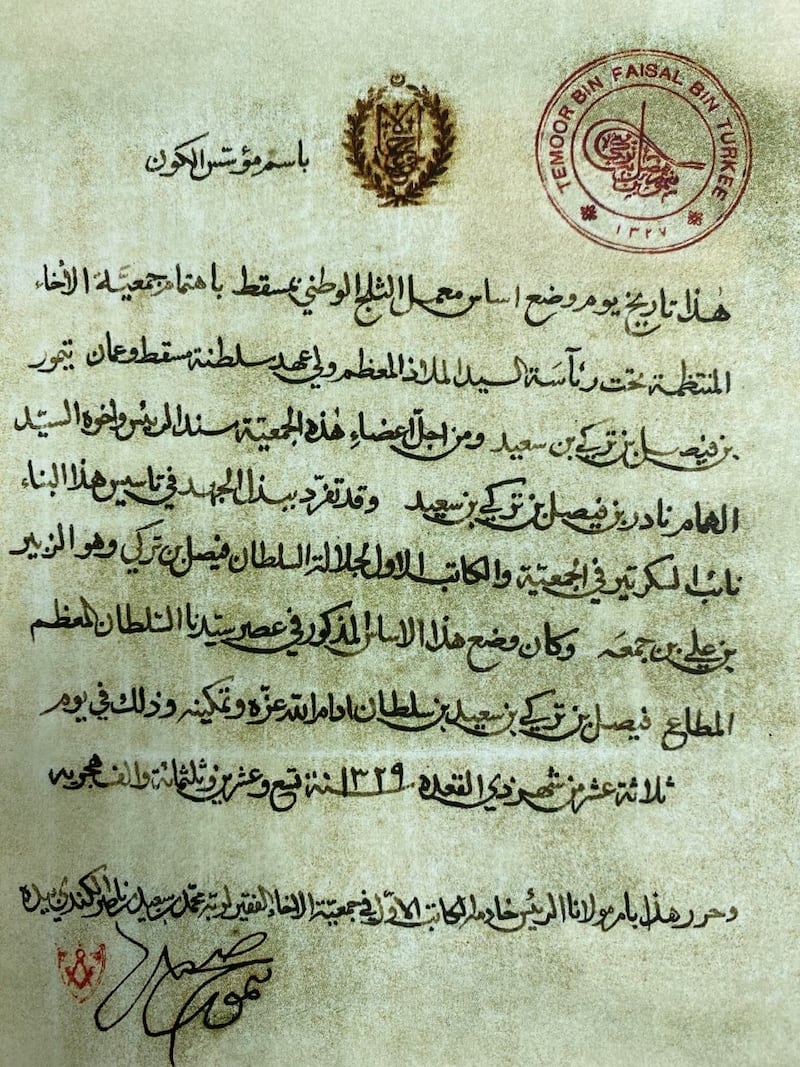 باسم مؤسس الكون
TEMOOR BIN FAISAL BIN TURKEE
١٣٢٧
هٰذا تاريخ يوم وضع اساس معمل الثلج الوطني بمسقط باهتمام جمعيّة الأخاء
المنتظمة تحت رئآسة السيد الملاذ المعظم ولي عهد سلطنة مسقط وعمان تيمور
بن فيصل بن تركي بن سعيد ومن اجلّ اعضاءِ هٰذه الجمعيّة سند الرئيس واخوه السيّد
الهمام نادر بن فيصل بن تركي بن سعيد وقد تفرّد ببذل الجهد في تاسيس هذا البناء
نائب السكرتير في الجمعيّة والكاتب الاول لجلالة السلطان فيصل بن تركي وهو الزبير
بن علي بن جمعه وكان وضع هذا الاساس المذكور في عصر سيّدنا السّلطان المعظم
المطاع فيصل بن تركي بن سعيد بن سلطان ادام الله عزّه وتمكينه وذلك في يوم
ثلاثة عشر من شهر ذي القعده ١٣٢٩ سنة تسع وعشرين وثلثمائة والف هجريه
وحرر هذا بامر مولانا الرئيس خادمه الكاتب الاوّل في جمعيّة الاخاء الفقير لربّه محمّد بن سعيد بن ناصر الكندي بيده
صحيح
تيمور